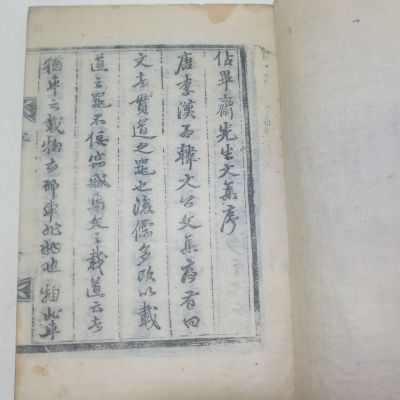 佔畢齋先生文集序
唐李漢爲韓文公文集序有曰
文者貫道之器也後儒多改以載
道之器不佞惑焉文之載道云者
猶車之載物云耶車非物也物非車